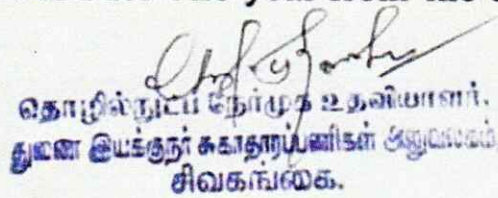 தொழில்நுட்ப நேர்முக உதவியாளர்.
துணை இயக்குநர் சுகாதாரப்பணிகள் அலுவலகம்,
சிவகங்கை.